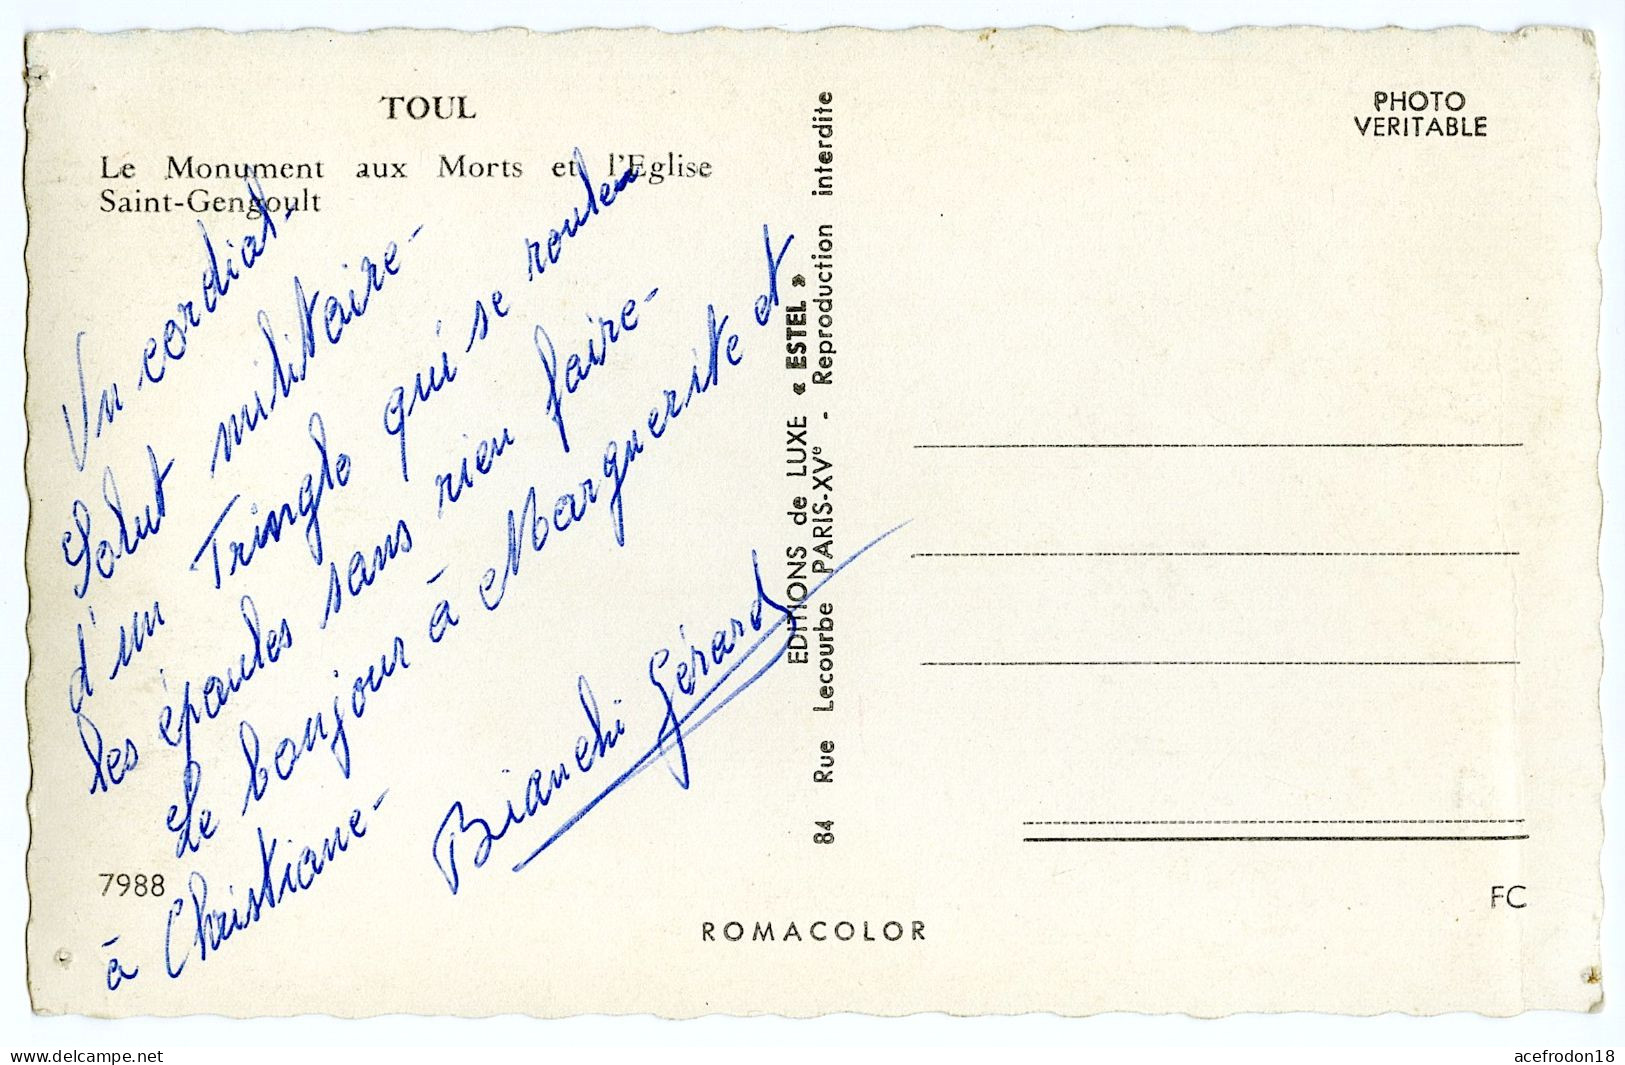 TOUL
Le Monument aux Morts et l'Eglise
Saint-Gengoult
Un cordial-
Salut militaire-
d'un Tringlo qui se roulen
les épaules sans rien faire-
Le bonjour à Marguerite et
à Christiane-
Bianchi Gérard
7988
EDITIONS de LUXE « ESTEL »
84 Rue Lecourbe PARIS-XVe - Reproduction interdite
ROMACOLOR
PHOTO
VERITABLE
FC
www.delcampe.net
acefrodon18